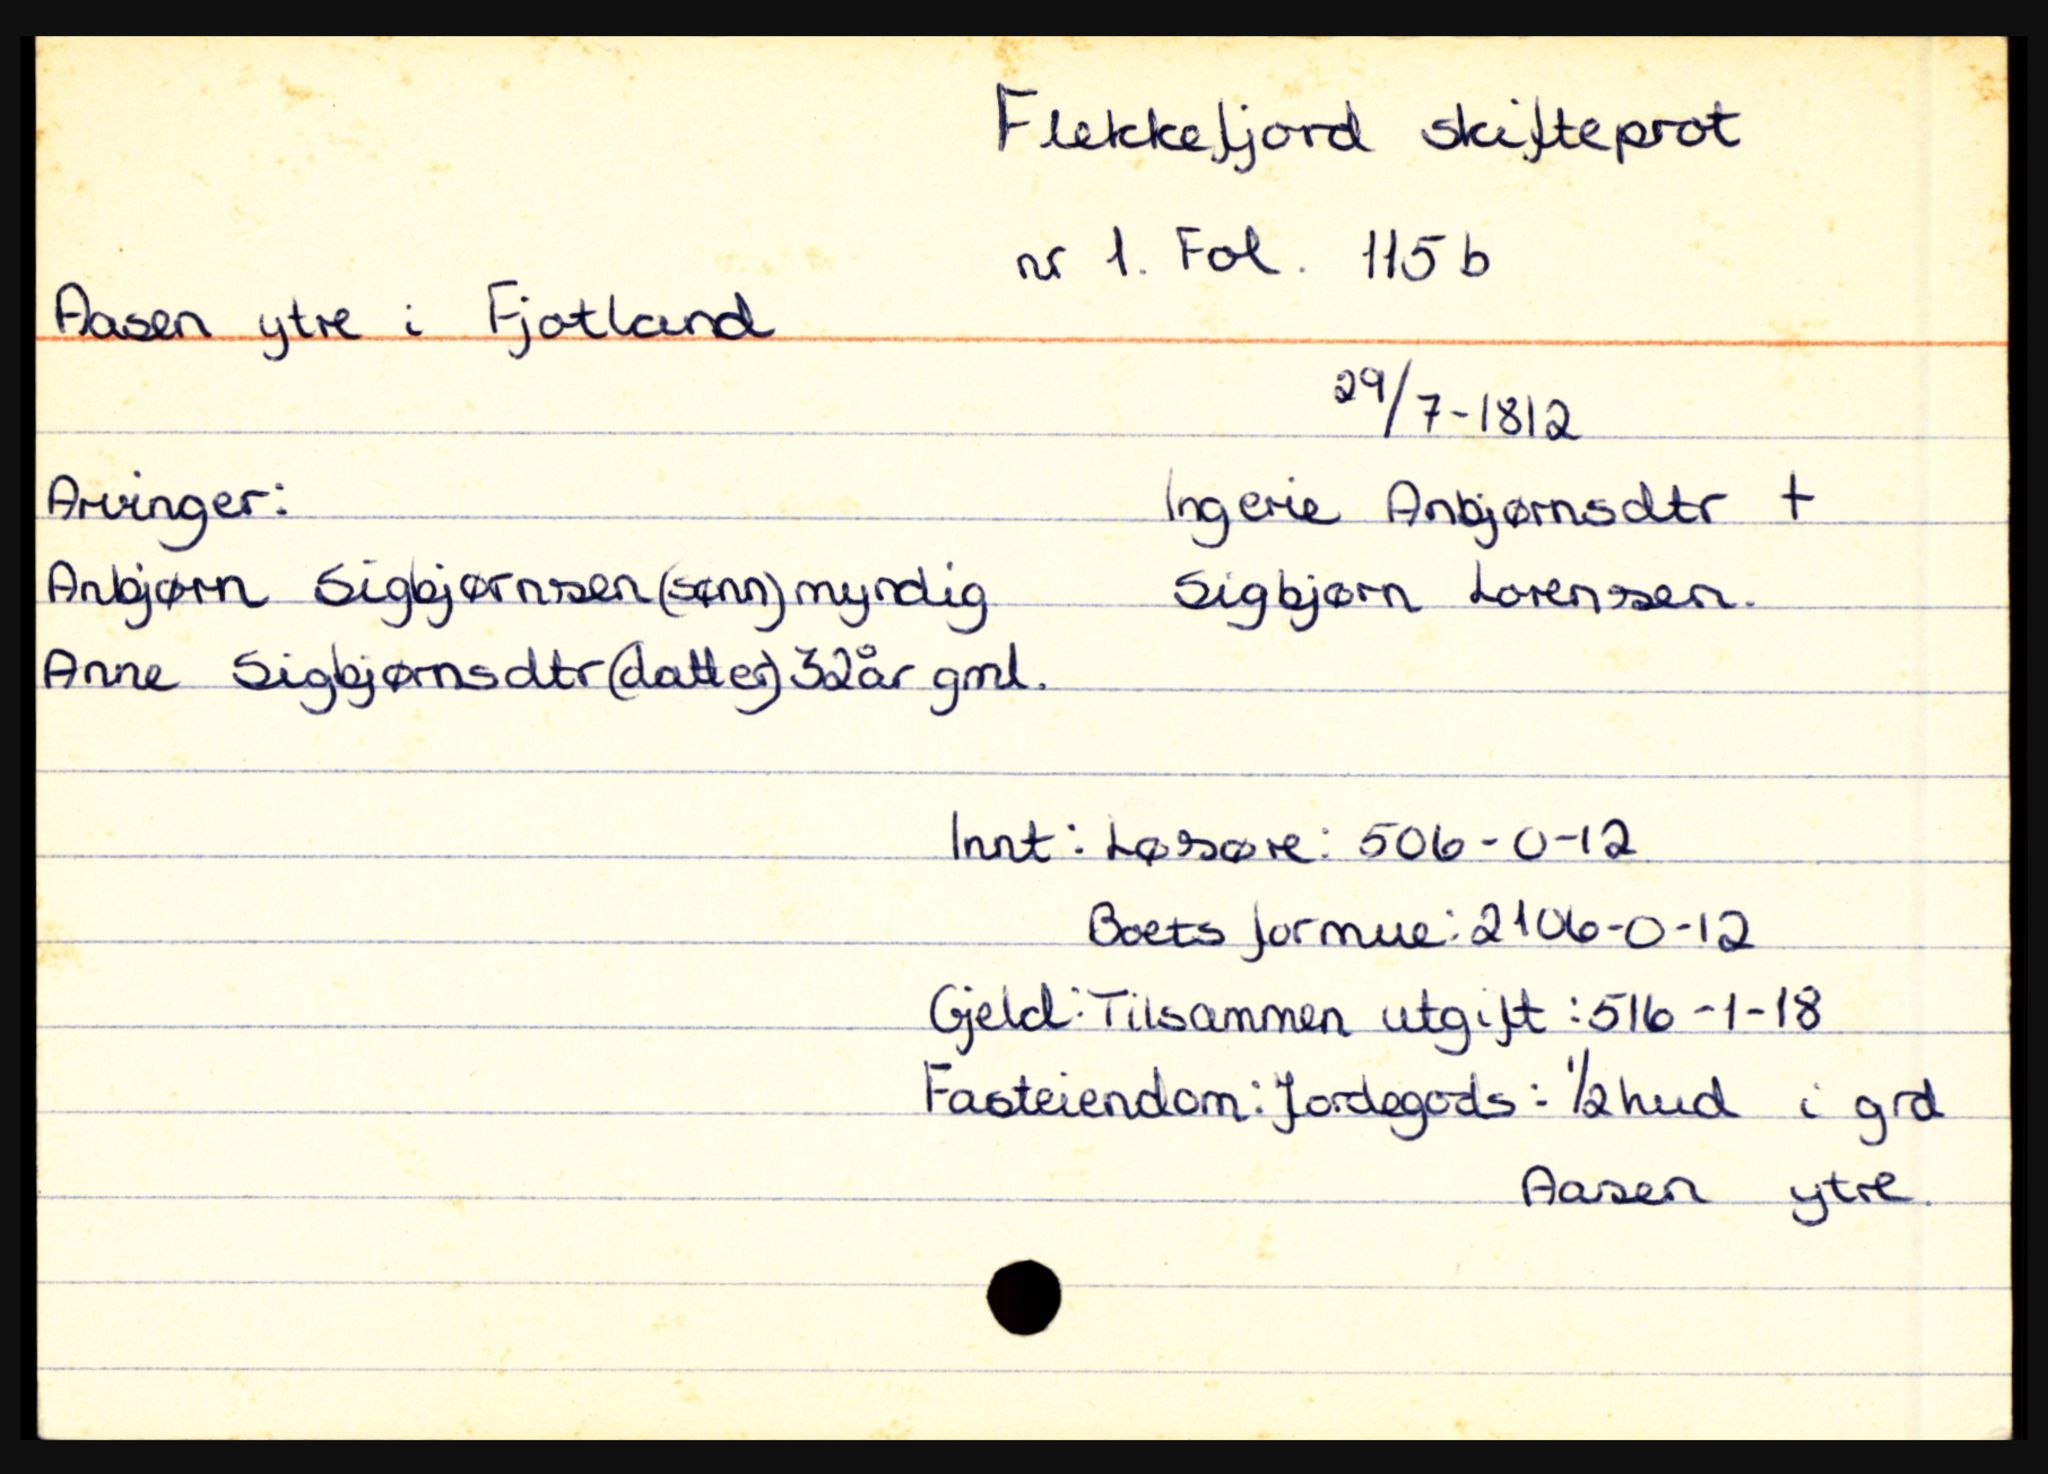 Flekkefjord skifteprot
nr 1. Fol. 115 b
Aasen ytre i Fjotland
29/7-1812
Arvinger:
Ingerie Anbjørnsdtr †
Anbjørn Sigbjørnssen (sønn) myndig
Sigbjørn Lorenssen.
Anne Sigbjørnsdtr (datter) 32 år gml.
Innt: Løsøre: 506-0-12
Boets formue: 2106-0-12
Gjeld: Tilsammen utgift: 516-1-18
Fasteiendom: Jordegods: 1/2 hud i grd
Aasen ytre.